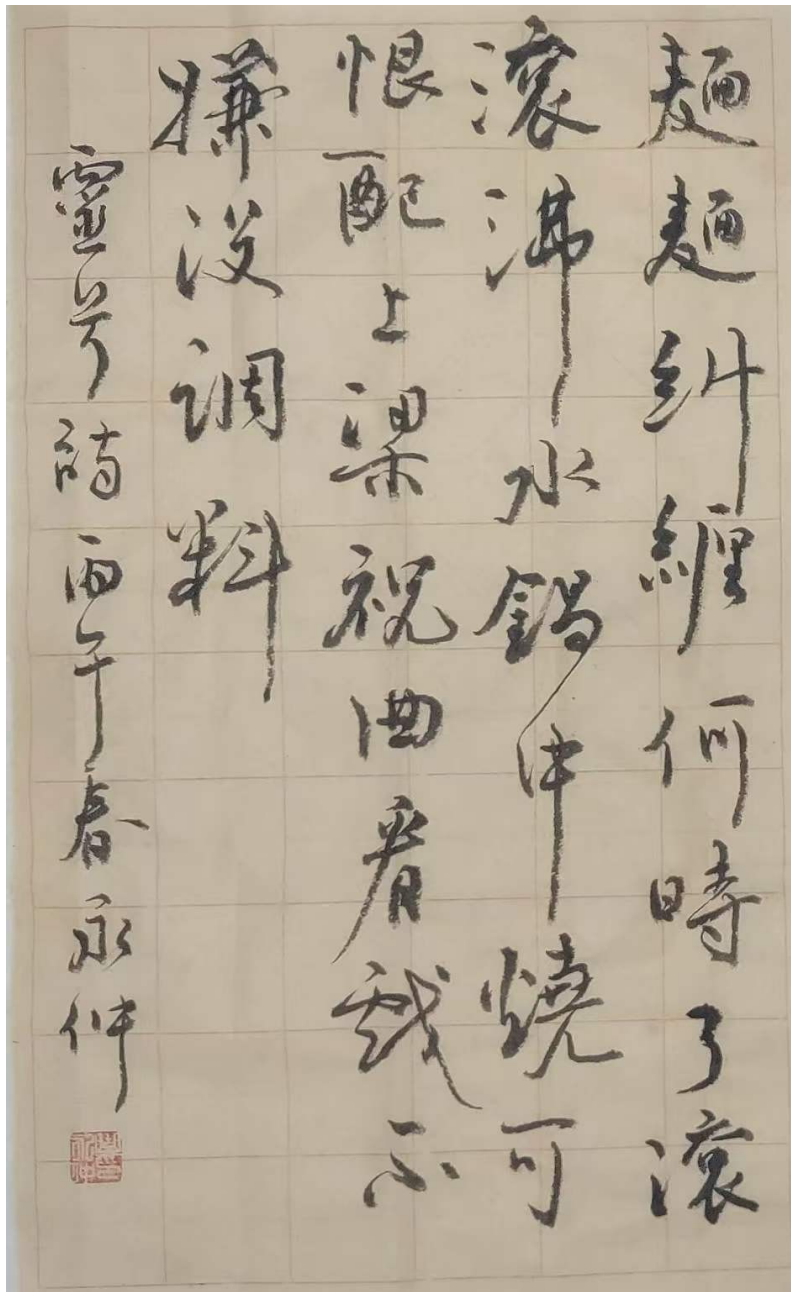 麺麺糾纏何時了滾
滾沸水鍋中燒可
恨配上梁祝曲看戲不
嫌没調料
靈兮詩丙午春永仲